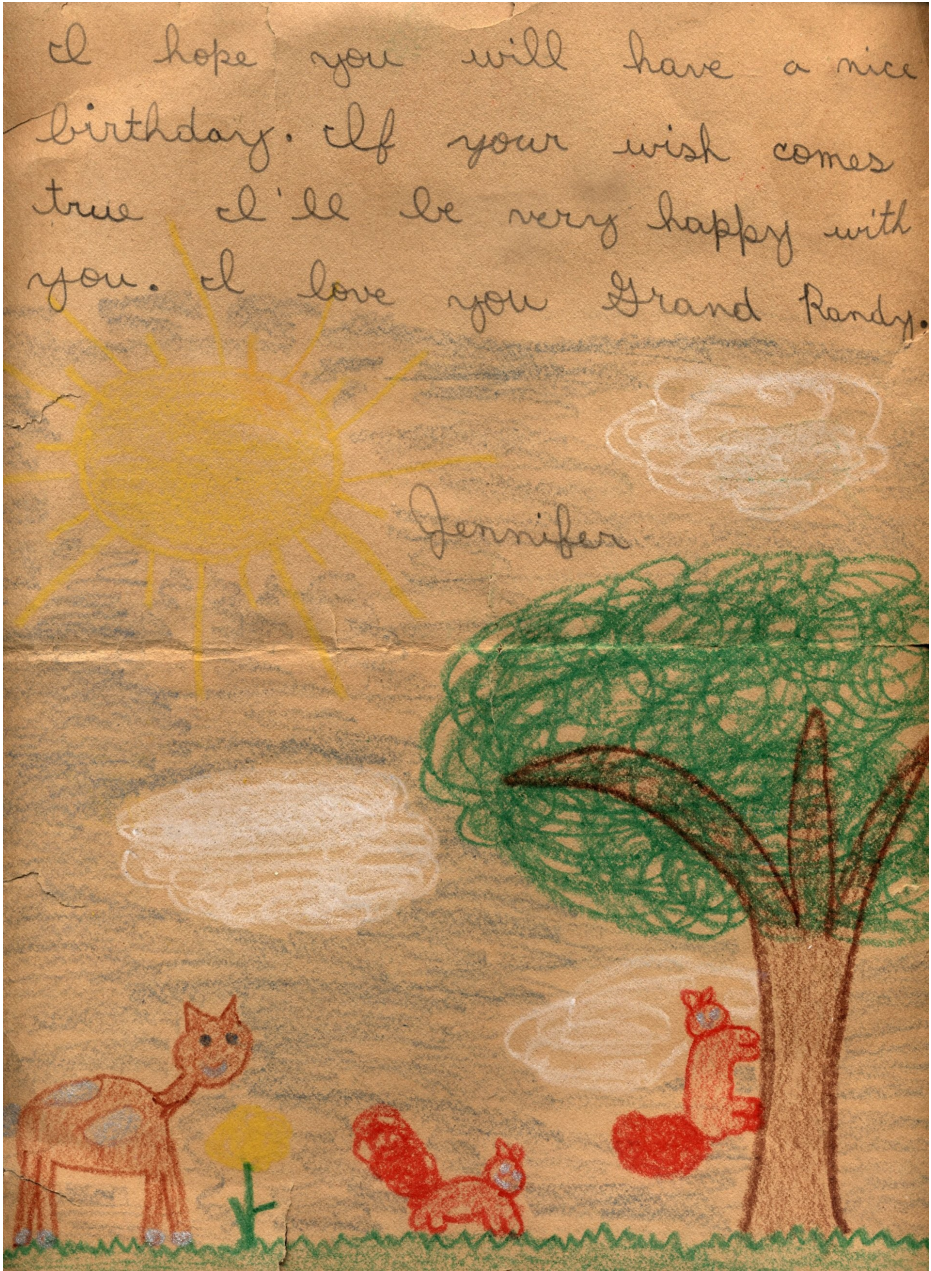 I hope you will have a nice
birthday. If your wish comes
true I'll be very happy with
you. I love you Grand Randy.
Jennifer